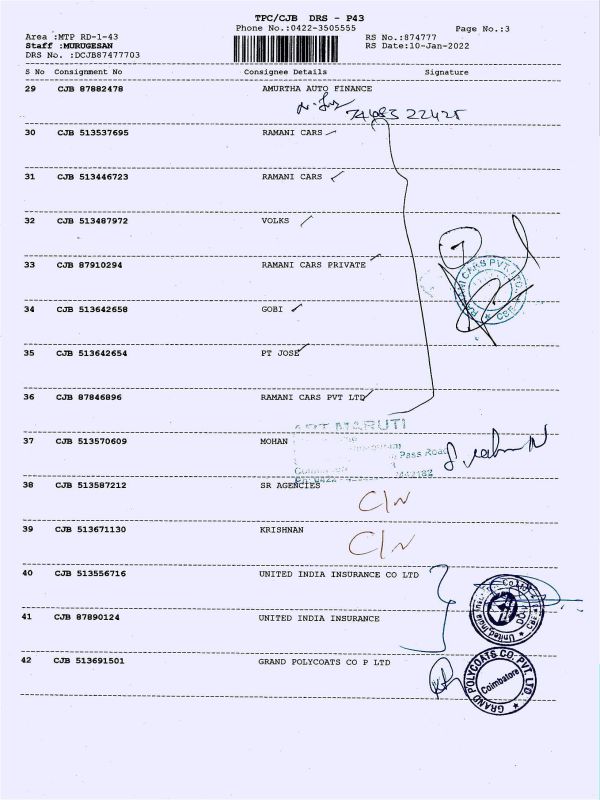 TPC/CJB DRS - P43
Phone No.:0422-3505555
Page No.:3
Area :MTP RD-1-43
RS No.:874777
Staff :MURUGESAN
RS Date:10-Jan-2022
DRS No. :DCJB87477703
S No Consignment No Consignee Details Signature
29 CJB 87882478 AMURTHA AUTO FINANCE
30 CJB 513537695 RAMANI CARS
31 CJB 513446723 RAMANI CARS
32 CJB 513487972 VOLKS
33 CJB 87910294 RAMANI CARS PRIVATE
34 CJB 513642658 GOBI
35 CJB 513642654 PT JOSE
36 CJB 87846896 RAMANI CARS PVT LTD
MARUTI
37 CJB 513570609 MOHAN
Pass Road
38 CJB 513587212 SR AGENCIES
C/N
39 CJB 513671130 KRISHNAN
C/N
40 CJB 513556716 UNITED INDIA INSURANCE CO LTD
41 CJB 87890124 UNITED INDIA INSURANCE
42 CJB 513691501 GRAND POLYCOATS CO P LTD
GRAND POLYCOATS CO. PVT. LTD.
Coimbatore